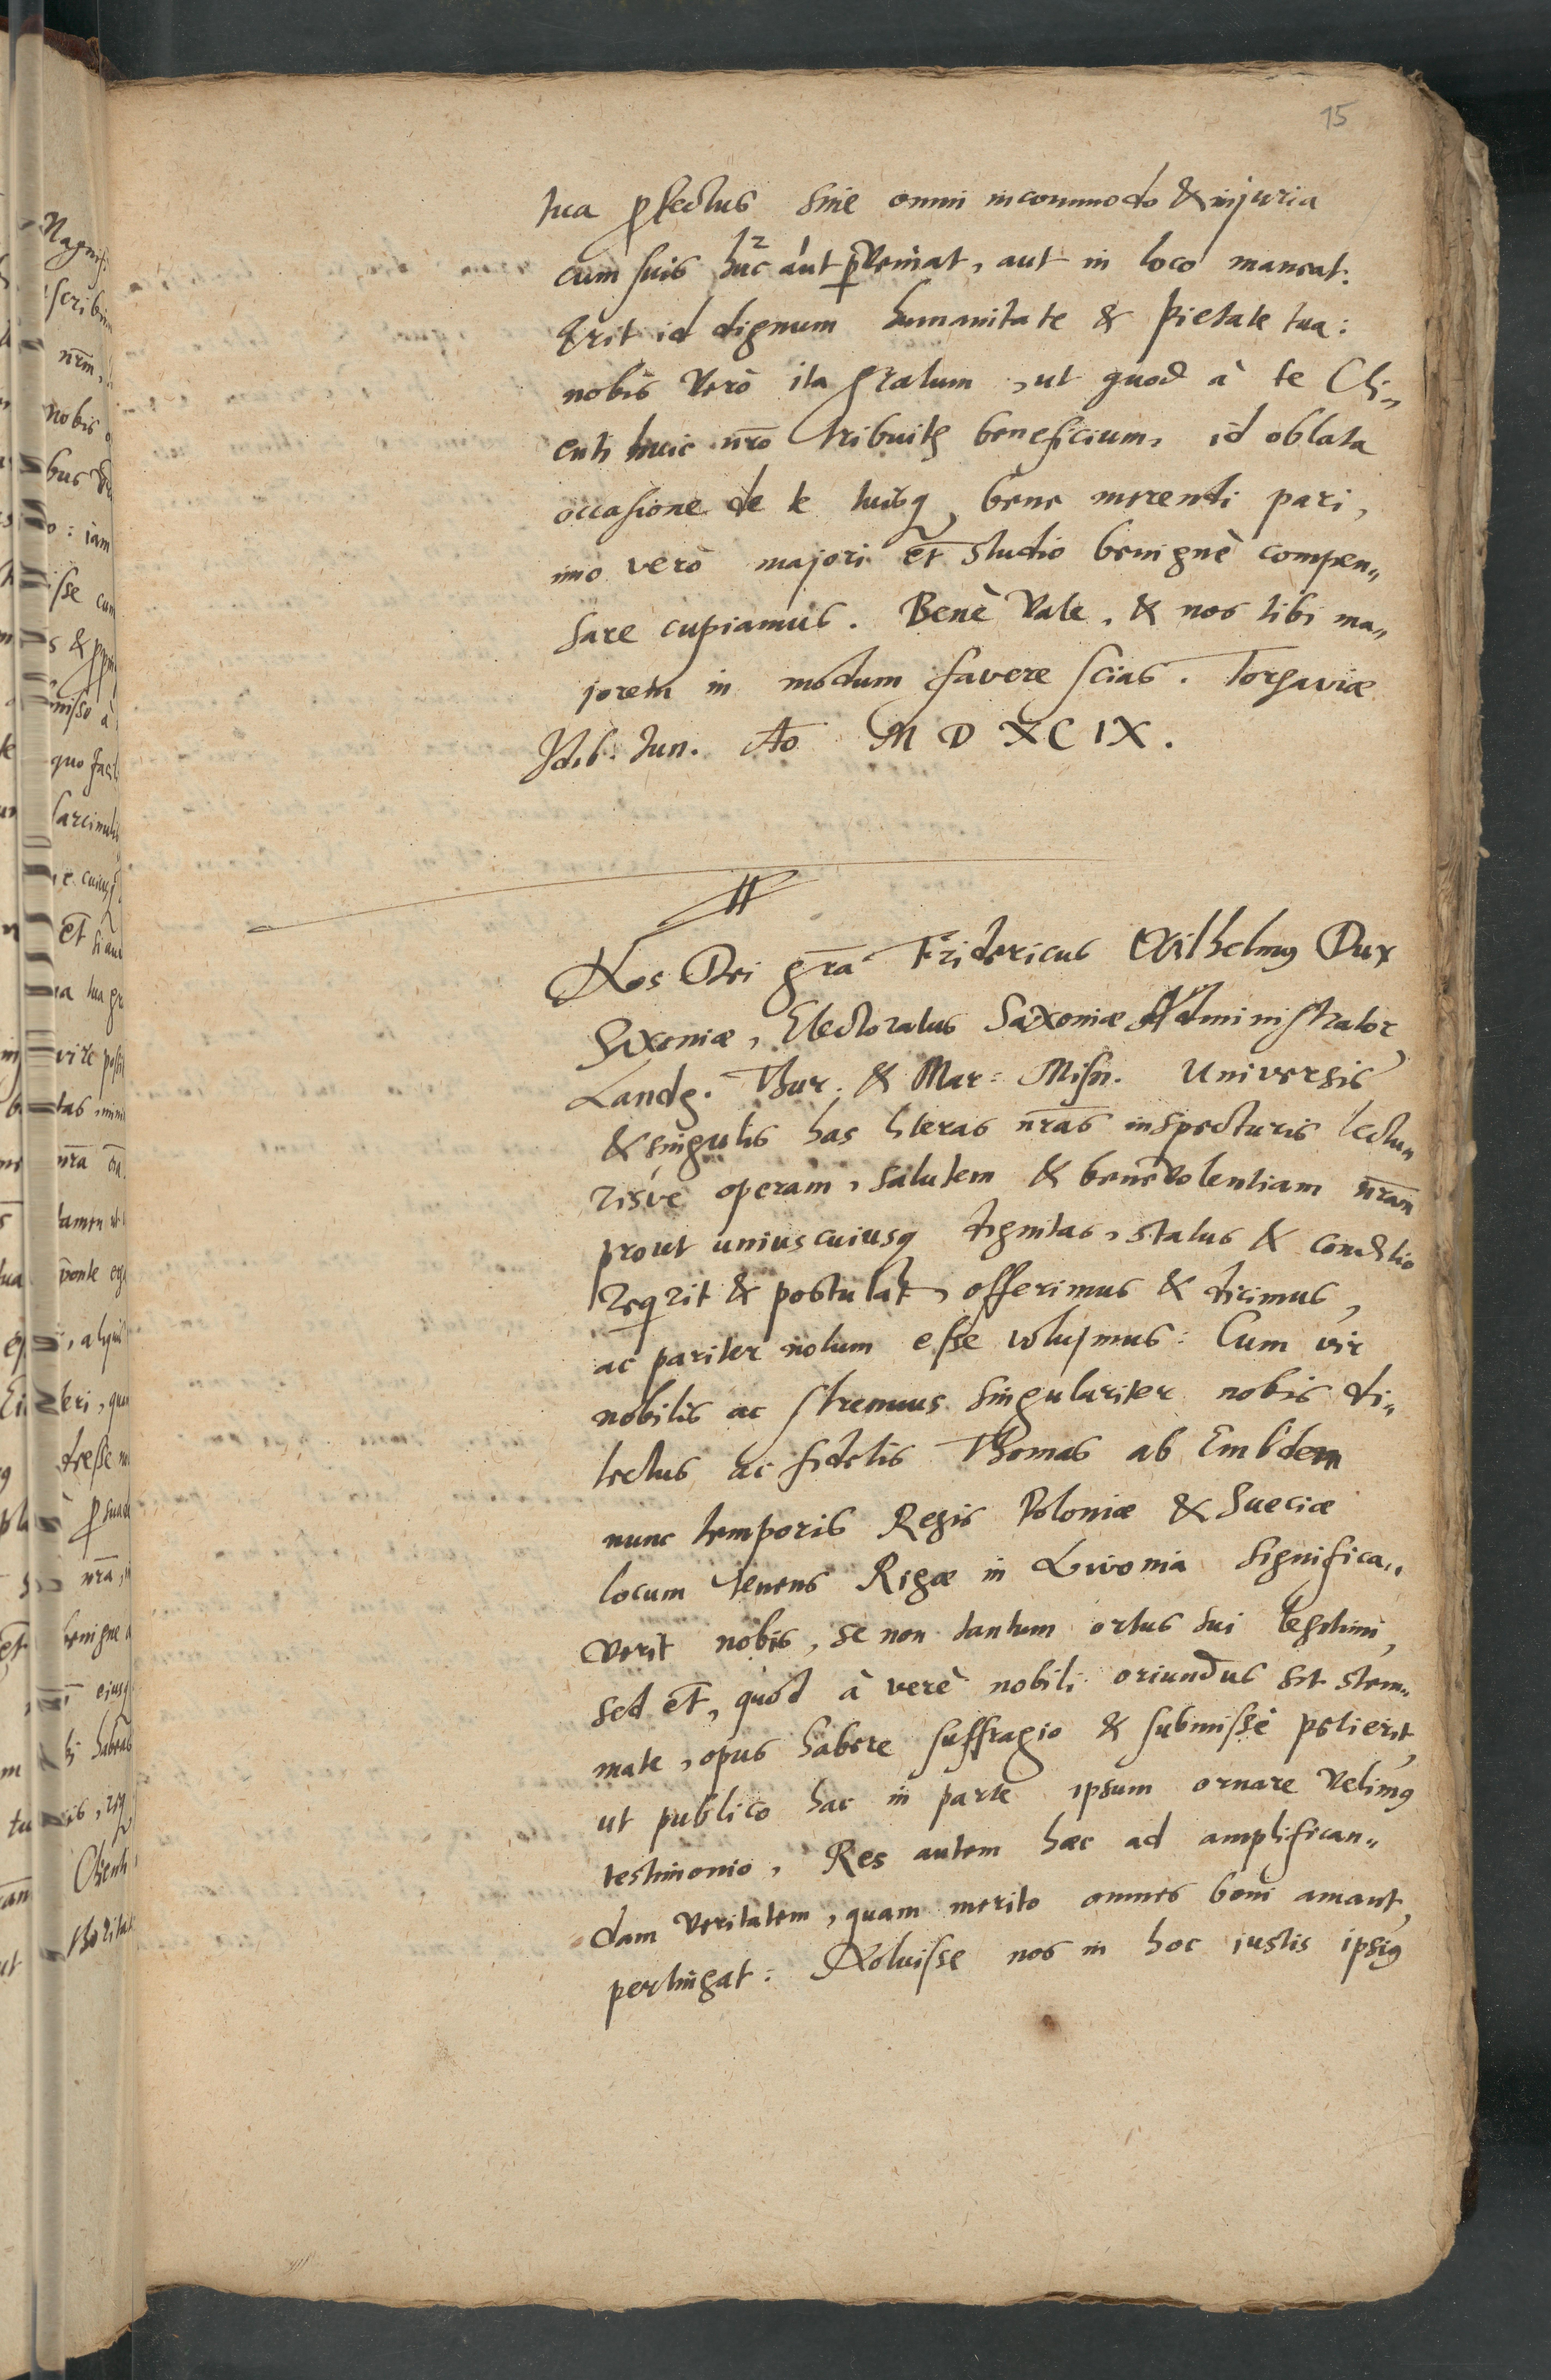 15
tua ꝓfectus sine omni incommodo & injuria
cum suis huc aut p̱veniat, aut in loco maneat.
Erit id dignum humanitate & pietate tua:
nobis verò ita gratum, ut quod à te Cli„
enti huic nr̄o tribuitr beneficium, id oblata
occasione de te tuisq, bene merenti pari,
imo verò majori et̄ studio benignè compen„
sare cupiamus. Benè Vale, & nos tibi ma„
jorem in modum favere scias. Torgaviæ
Idib. Jun. Ao MDXCIX.
Nos Dei gr̄a Fridericus Wilhelmus Dux
Saxoniæ, Electoratus Saxoniæ Administrator,
Landg. Thur. & Mar: Misn. Universis
& singulis has literas nr̄as inspecturis lectu„
risve operam, salutem & benevolentiam nr̄am
prout uniuscuiusq dignitas, status & conditio
reqrit & postulat, offerimus & dicimus,
ac pariter notum esse volumus: Cum vir
nobilis ac strenuus singulariter nobis di„
lectus ac fidelis Thomas ab Embden
nunc temporis Regis Poloniæ & Sueciæ
locum tenens Rigæ in Livonia significa„
verit nobis, se non tantum ortus sui legitimi,
sed et̄, quod à verè nobili oriundus sit stem„
mate, opus habere suffragio & submissè petierit,
ut publico hac in parte ipsum ornare velimus
testimonio, Res autem hæc ad amplifican„
dam veritatem, quam merito omnes boni amant,
pertingat: Noluisse nos in hoc iustis ipsius